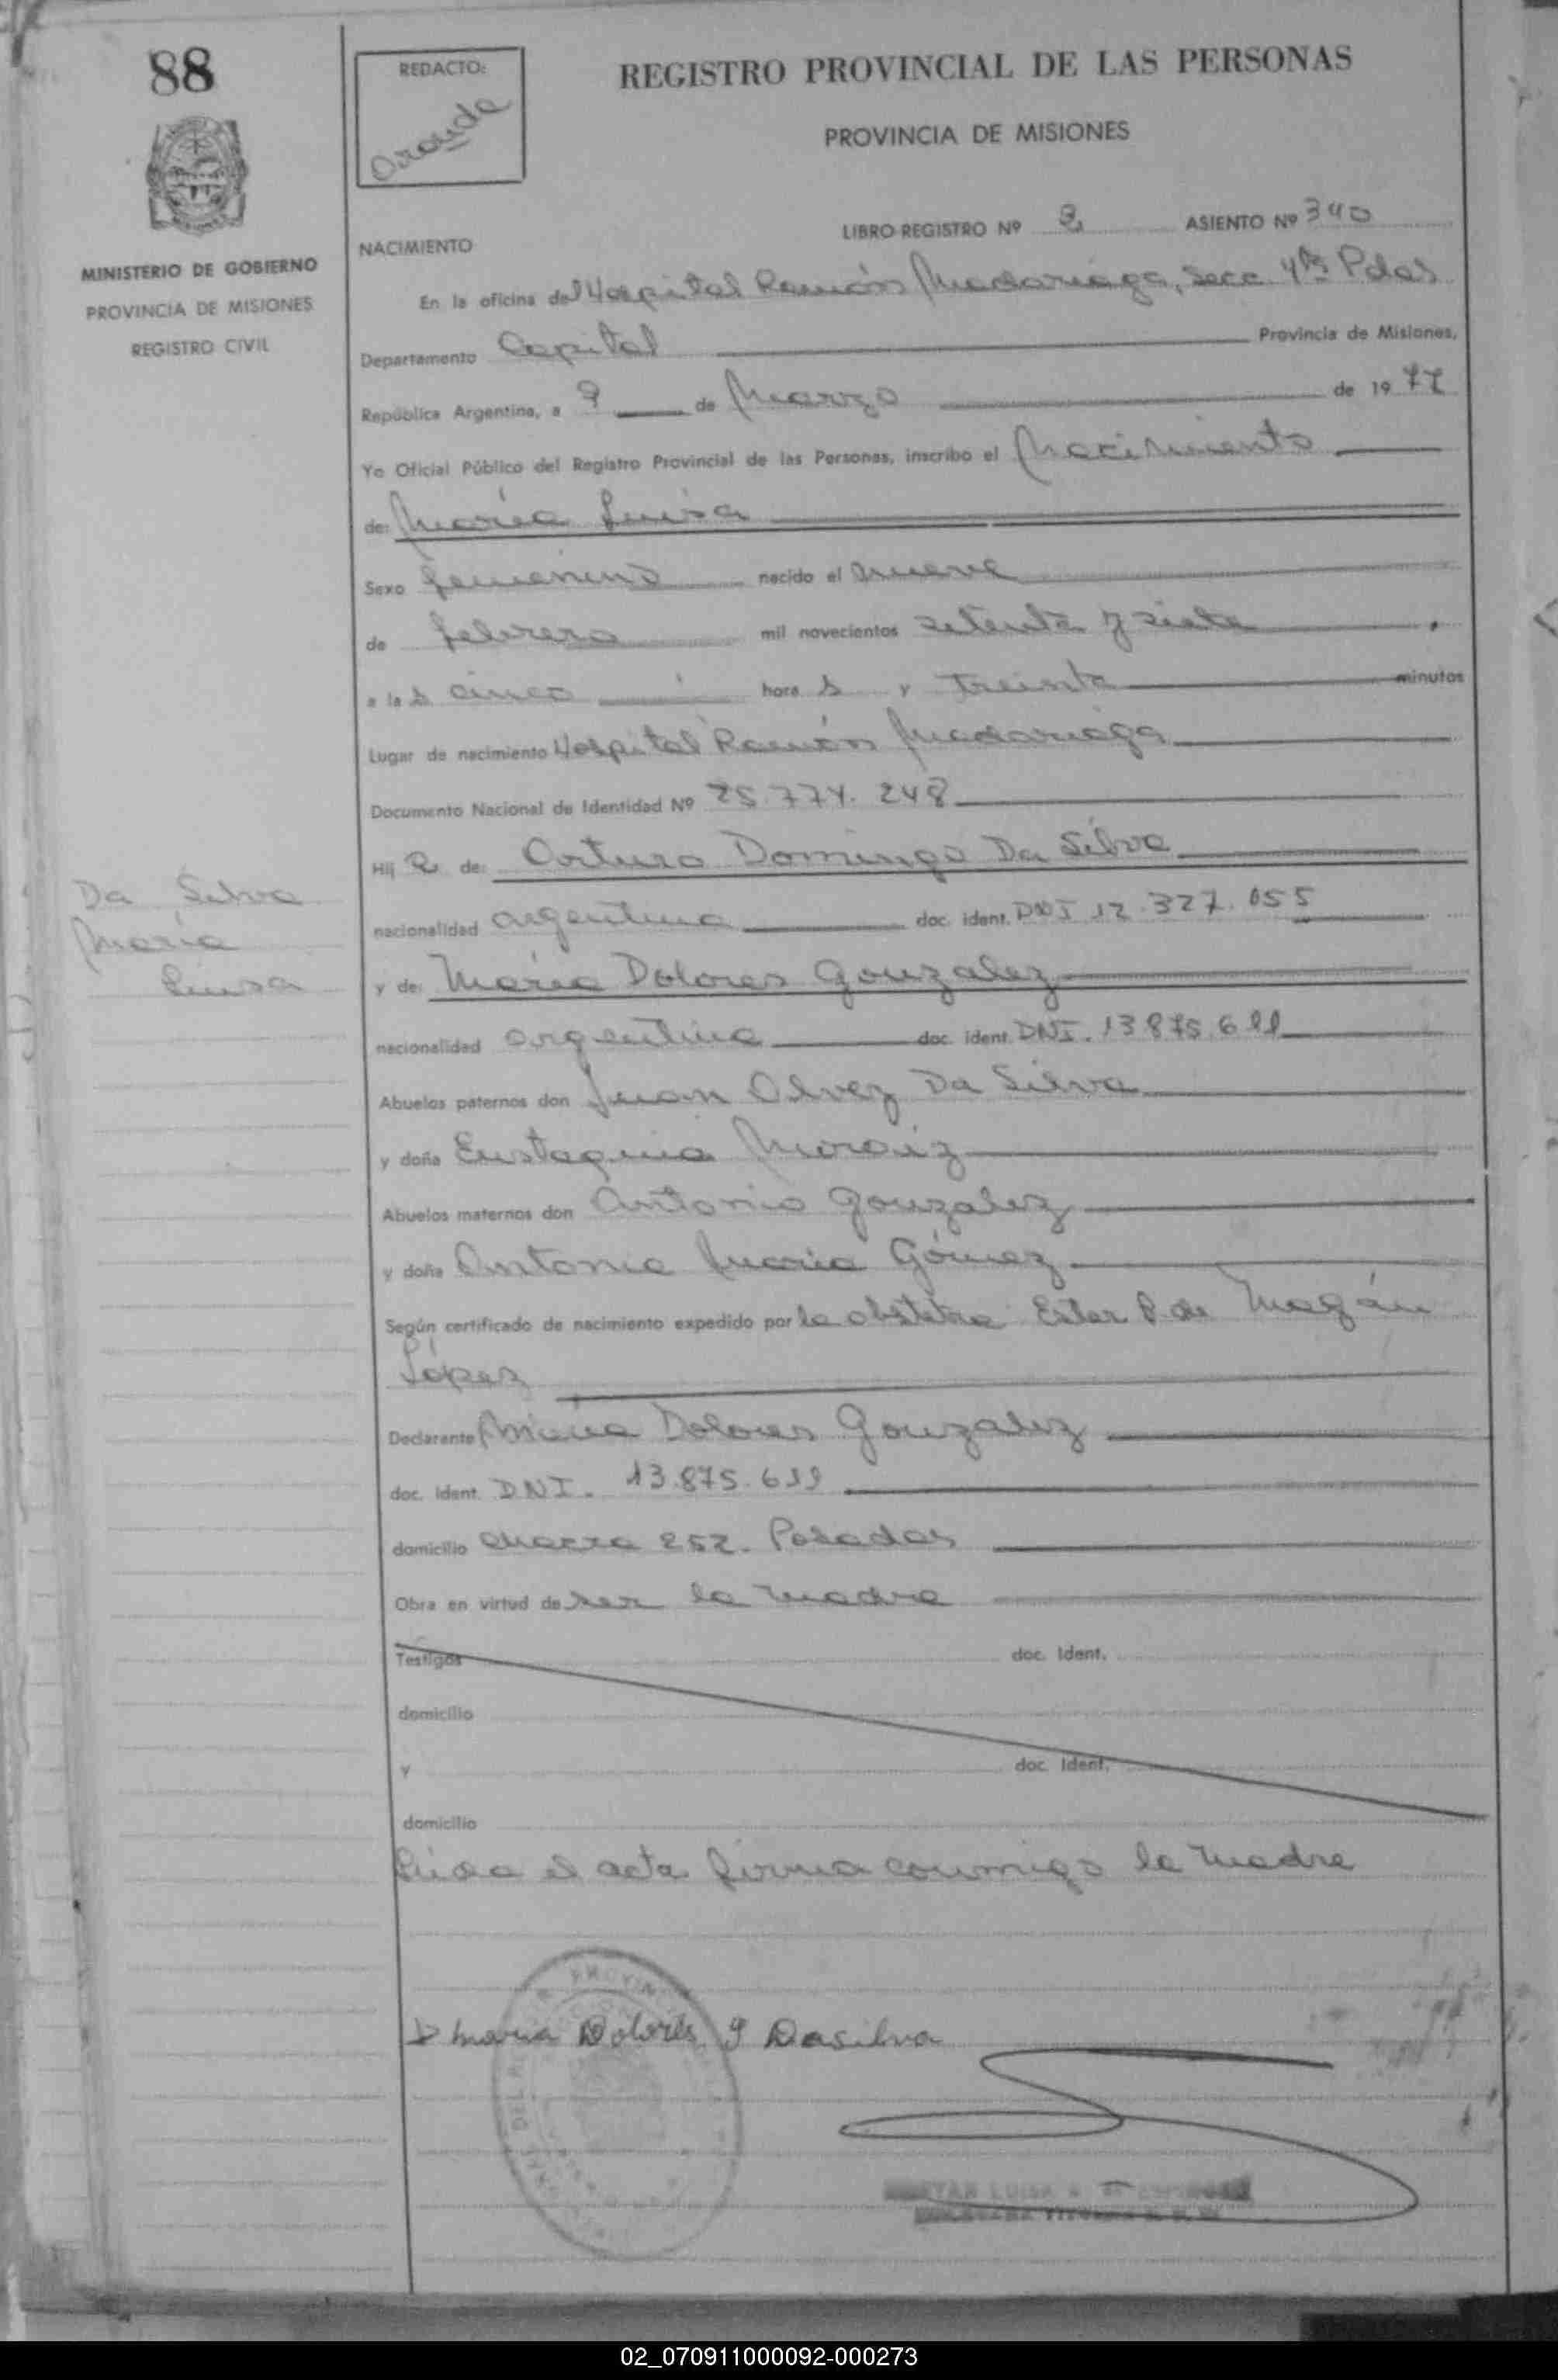 88
REDACTO:
Aranda
REGISTRO PROVINCIAL DE LAS PERSONAS
PROVINCIA DE MISIONES
MINISTERIO DE GOBIERNO
PROVINCIA DE MISIONES
REGISTRO CIVIL
LIBRO REGISTRO Nº 2 ASIENTO Nº 340
NACIMIENTO
En la oficina del Hospital Ramón Madariaga, Secc. 4ta Pdas
Departamento Capital Provincia de Misiones,
República Argentina, a 9 de Marzo de 1977
Yo Oficial Público del Registro Provincial de las Personas, inscribo el Nacimiento
de: María Luisa
Sexo femenino nacido el nueve
de febrero mil novecientos setenta y siete
a las cinco horas y treinta minutos
Lugar de nacimiento Hospital Ramón Madariaga
Documento Nacional de Identidad Nº 25.774.248
Hija de: Arturo Domingo Da Silva
nacionalidad argentina doc. ident. DNI 12.327.055
Da Silva
María
Luisa
y de: María Dolores Gonzalez
nacionalidad argentina doc. ident. DNI. 13.875.611
Abuelos paternos don Juan Olvez Da Silva
y doña Eustaquia Moraiz
Abuelos maternos don Antonio Gonzalez
y doña Antonia María Gómez
Según certificado de nacimiento expedido por la obstetra Ester P. de Magán
López
Declarante María Dolores Gonzalez
doc. Ident. DNI. 13.875.611
domicilio chacra 252. Posadas
Obra en virtud de ser la madre
Testigos doc. Ident.
domicilio
y doc. Ident.
domicilio
Leida el acta firma conmigo la madre
Maria Dolores g Dasilva
02_070911000092-000273